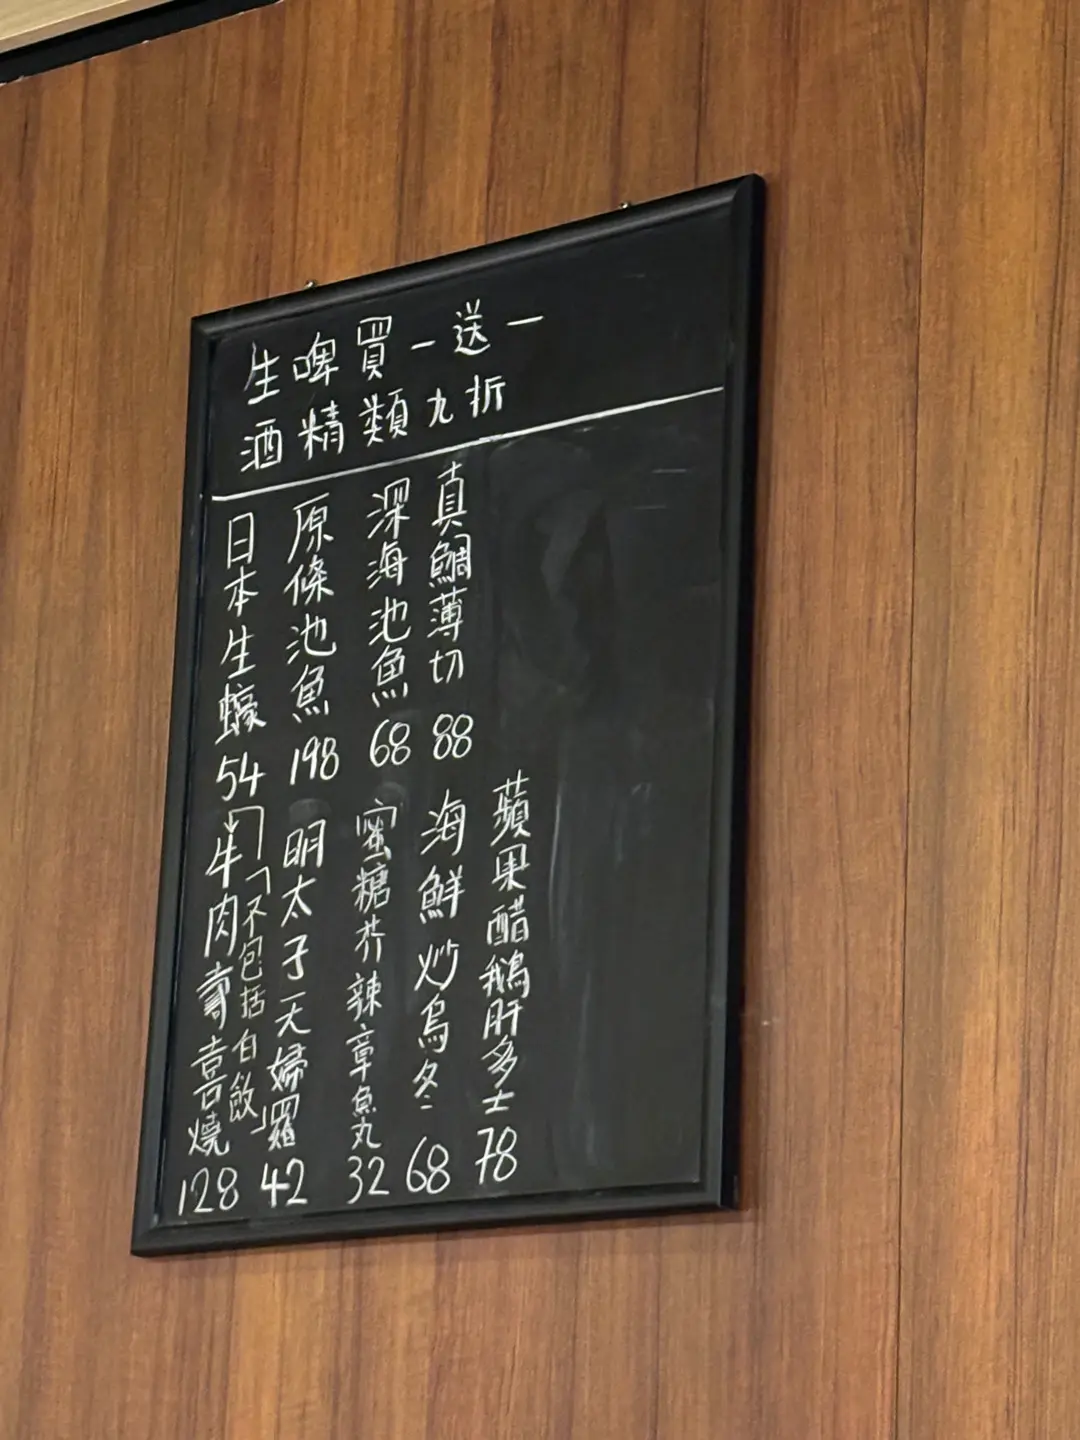 生啤買一送一
酒精類九折
真鯛薄切 88
深海池魚 68
原條池魚 198
日本生蠔 54
蘋果醋鵝肝多士 78
海鮮炒烏冬 68
蜜糖芥辣章魚丸 32
明太子天婦羅 42
牛肉壽喜燒 128
「不包括白飯」